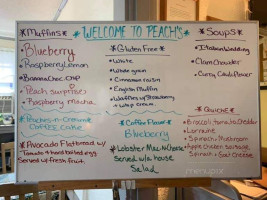 *WELCOME TO PEACH'S*
*Muffins*
Blueberry
*Raspberry Lemon
*Banana Choc chip
*Peach surprise
*Raspberry mocha
*Peaches-n-Cream
COFFEE CAKE
*Avocado Flatbread w/
Tomato + hard boiled egg
Served w/ fresh fruit
*Gluten Free*
*White
*Whole grain
*Cinnamon raisin
*English Muffin
*Waffles w/ Strawberry
+ whip cream
*Coffee Flavor*
Blueberry
*Lobster Mac & Cheese
Served w/a house
Salad
*Soups*
*Italian Wedding
*Clam Chowder
*Curry Cauliflower
*Quiche*
*Broccoli tomato cheddar
*Lorraine
*Spinach Mushroom
*Apple Cheddar Sausage
*Spinach + Goat Cheese